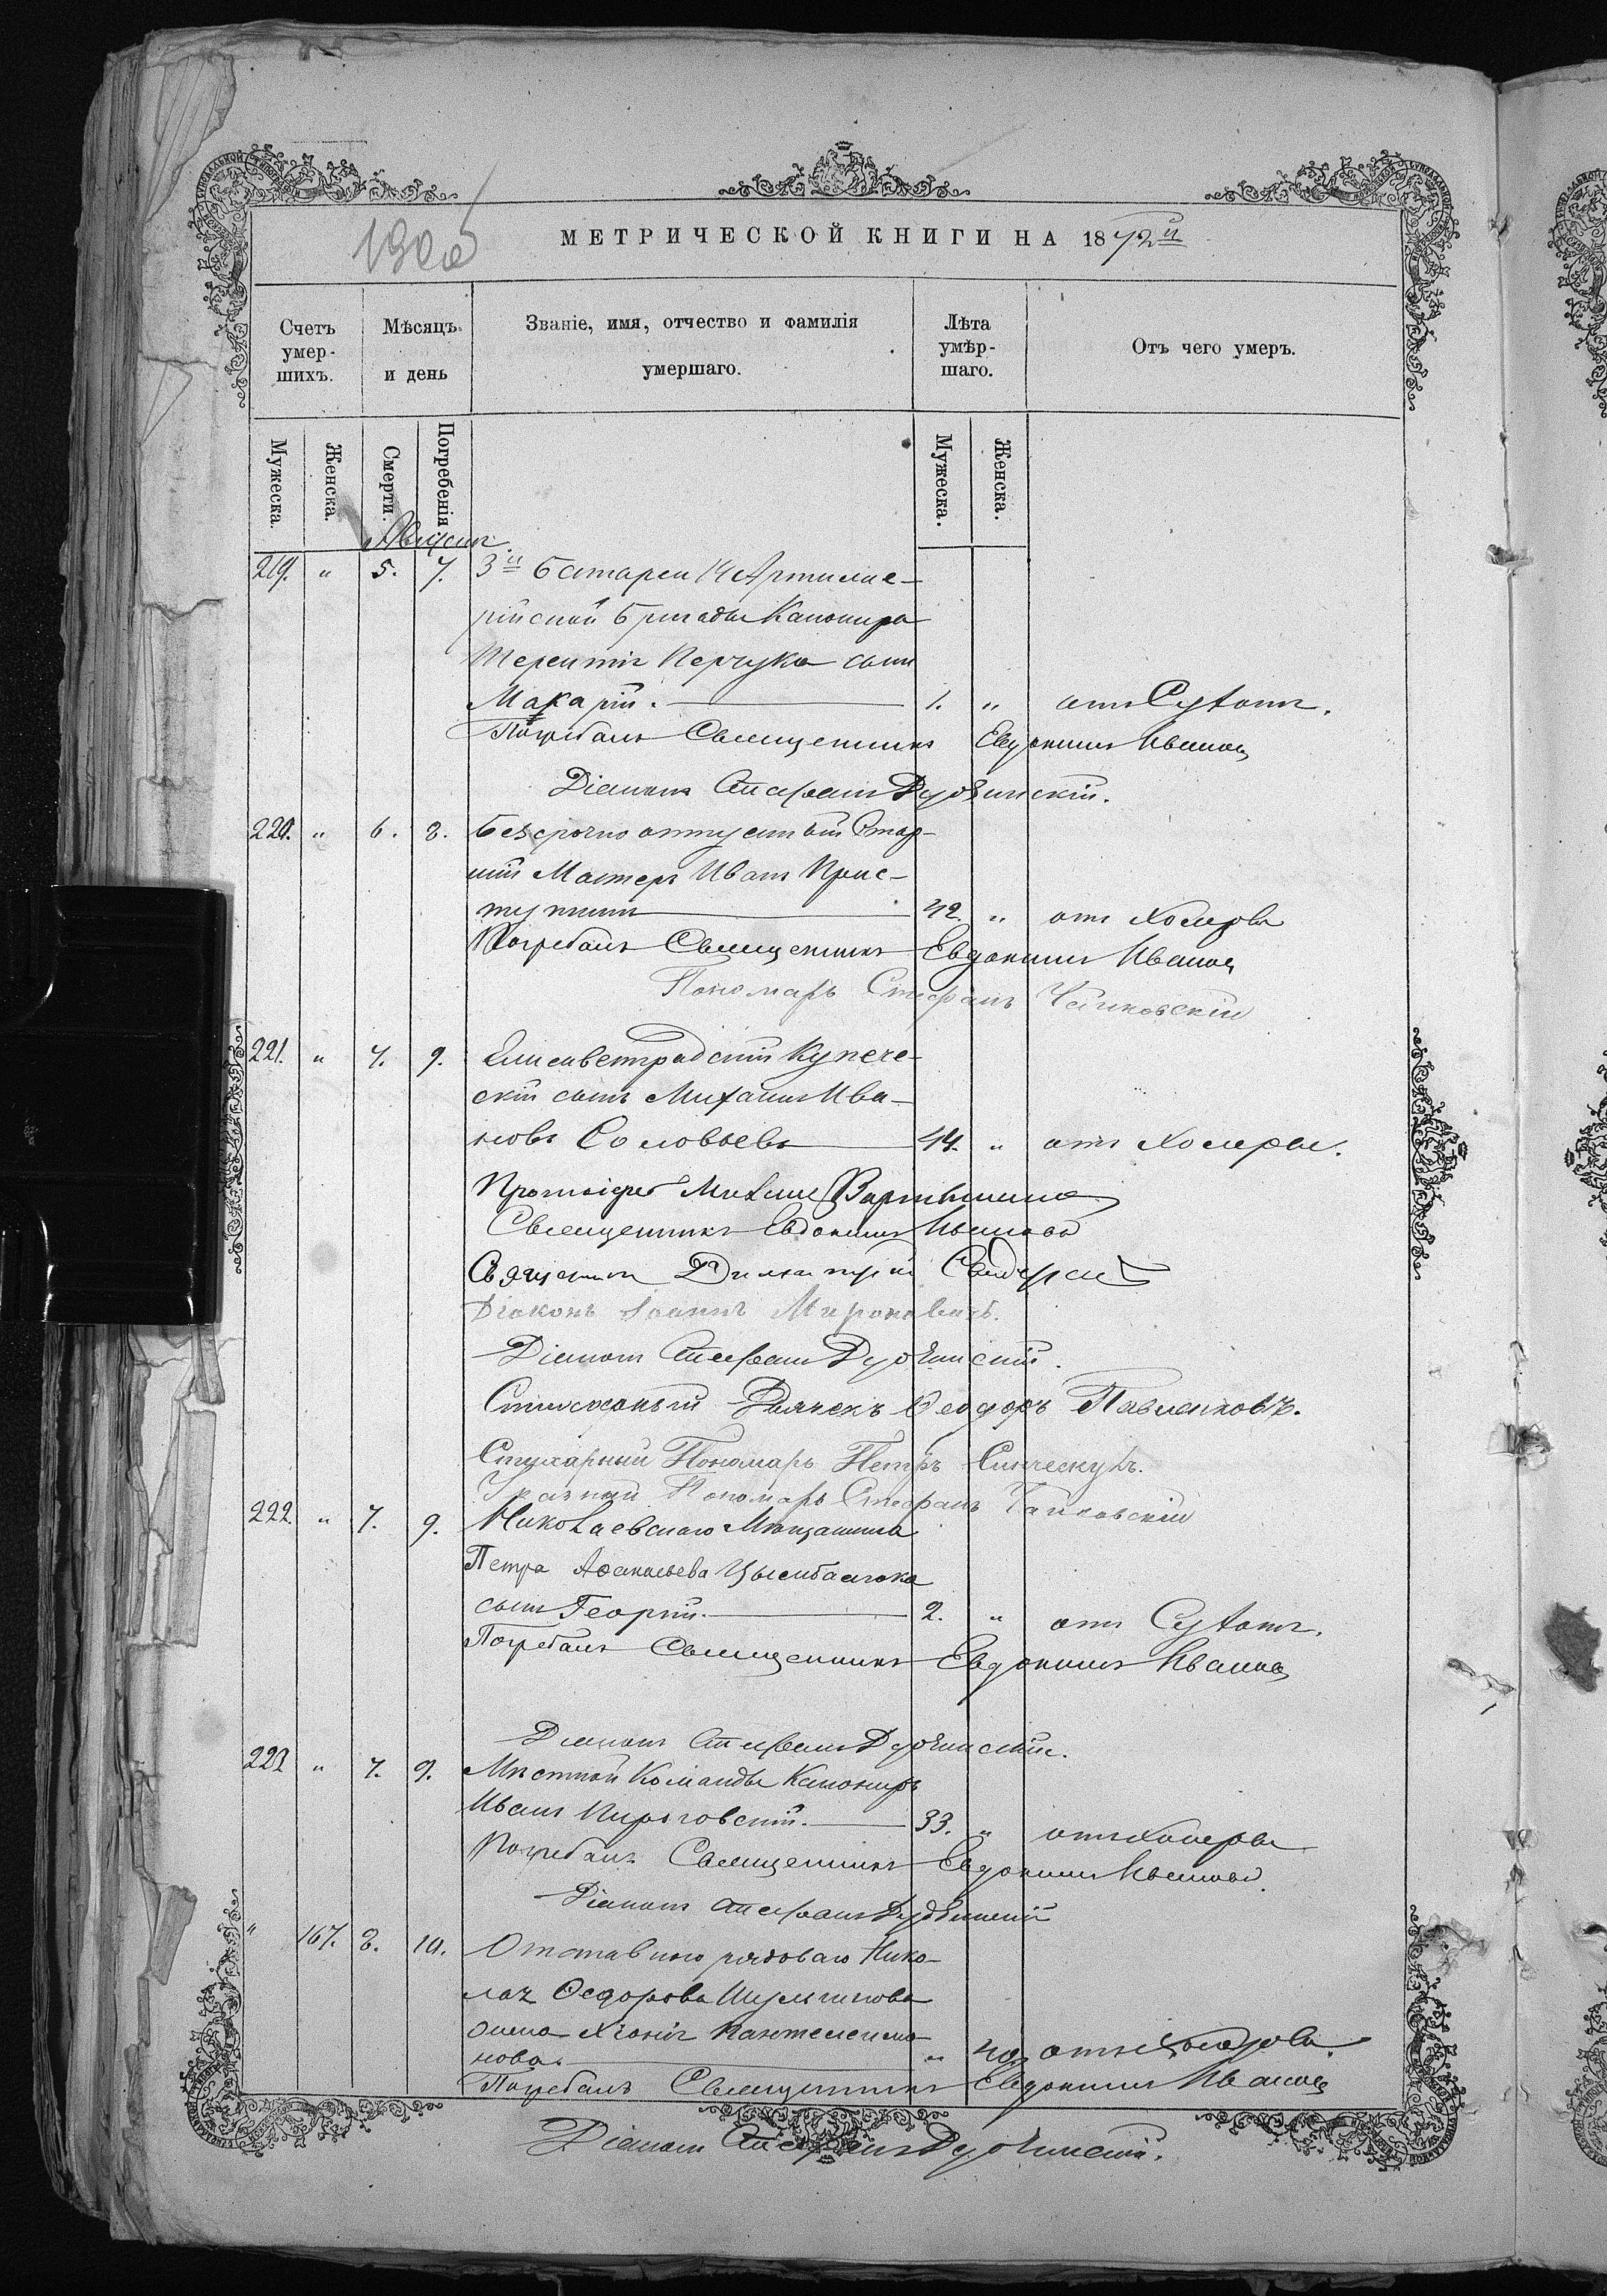 МЕТРИЧЕСКОЙ КНИГИ НА 1872й
Счетъ умер-шихъ.
Мѣсяцъ и день
Званіе, имя, отчество и фамилія умершаго.
Лѣта умѣр-шаго.
Отъ чего умеръ.
Мужеска. Женска. Смерти. Погребенія. Мужеска. Женска.
Августъ
219. " 5. 7. 3й батареи 14 Артилле-
рійской бригады Канонира
Терентія Перчука сынъ
Макарій. 1. " отъ Сухотъ.
Погребалъ Священникъ Евдокимъ Ивановъ
Діаконъ Стефанъ
220. " 6. 8. Безсрочно отпускный Стар-
шій Мастеръ Иванъ Прис-
тупкинъ 42. " отъ Холеры
Погребалъ Священникъ Евдокимъ Ивановъ
Пономарь Стефанъ Чайковскій
221. " 7. 9. Елисаветградскій Купече-
скій сынъ Михаилъ Ива-
новъ Соловьевъ 44. " отъ Холеры.
Протоіерей Михаилъ
Священникъ Евдокимъ Ивановъ
Священникъ Димитрій
Діаконъ Іоаннъ Мироновичъ.
Діаконъ Стефанъ
Дьячекъ Ѳеодоръ Павленковъ.
Пономарь Петръ
Пономарь Стефанъ Чайковскій
222. " 7. 9. Николаевскаго Мѣщанина
Петра Афанасьева Цымбалюка
сынъ Георгій. 2. " отъ Сухотъ.
Погребалъ Священникъ Евдокимъ Ивановъ
Діаконъ Стефанъ
223 " 7. 9. Мѣстной Команды Канониръ
Иванъ Пироговскій. 33. " отъ Холеры
Погребалъ Священникъ Евдокимъ Ивановъ.
Діаконъ Стефанъ
" 167. 8. 10. Отставного рядоваго Нико-
лая Ѳедорова
жена Хіонія Пантелеимо-
нова. " 40. отъ Холеры.
Погребалъ Священникъ Евдокимъ Ивановъ
Діаконъ Стефанъ